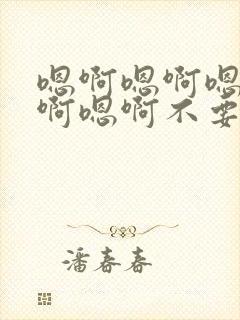 嗯啊嗯啊嗯
啊嗯啊不要
潘春春